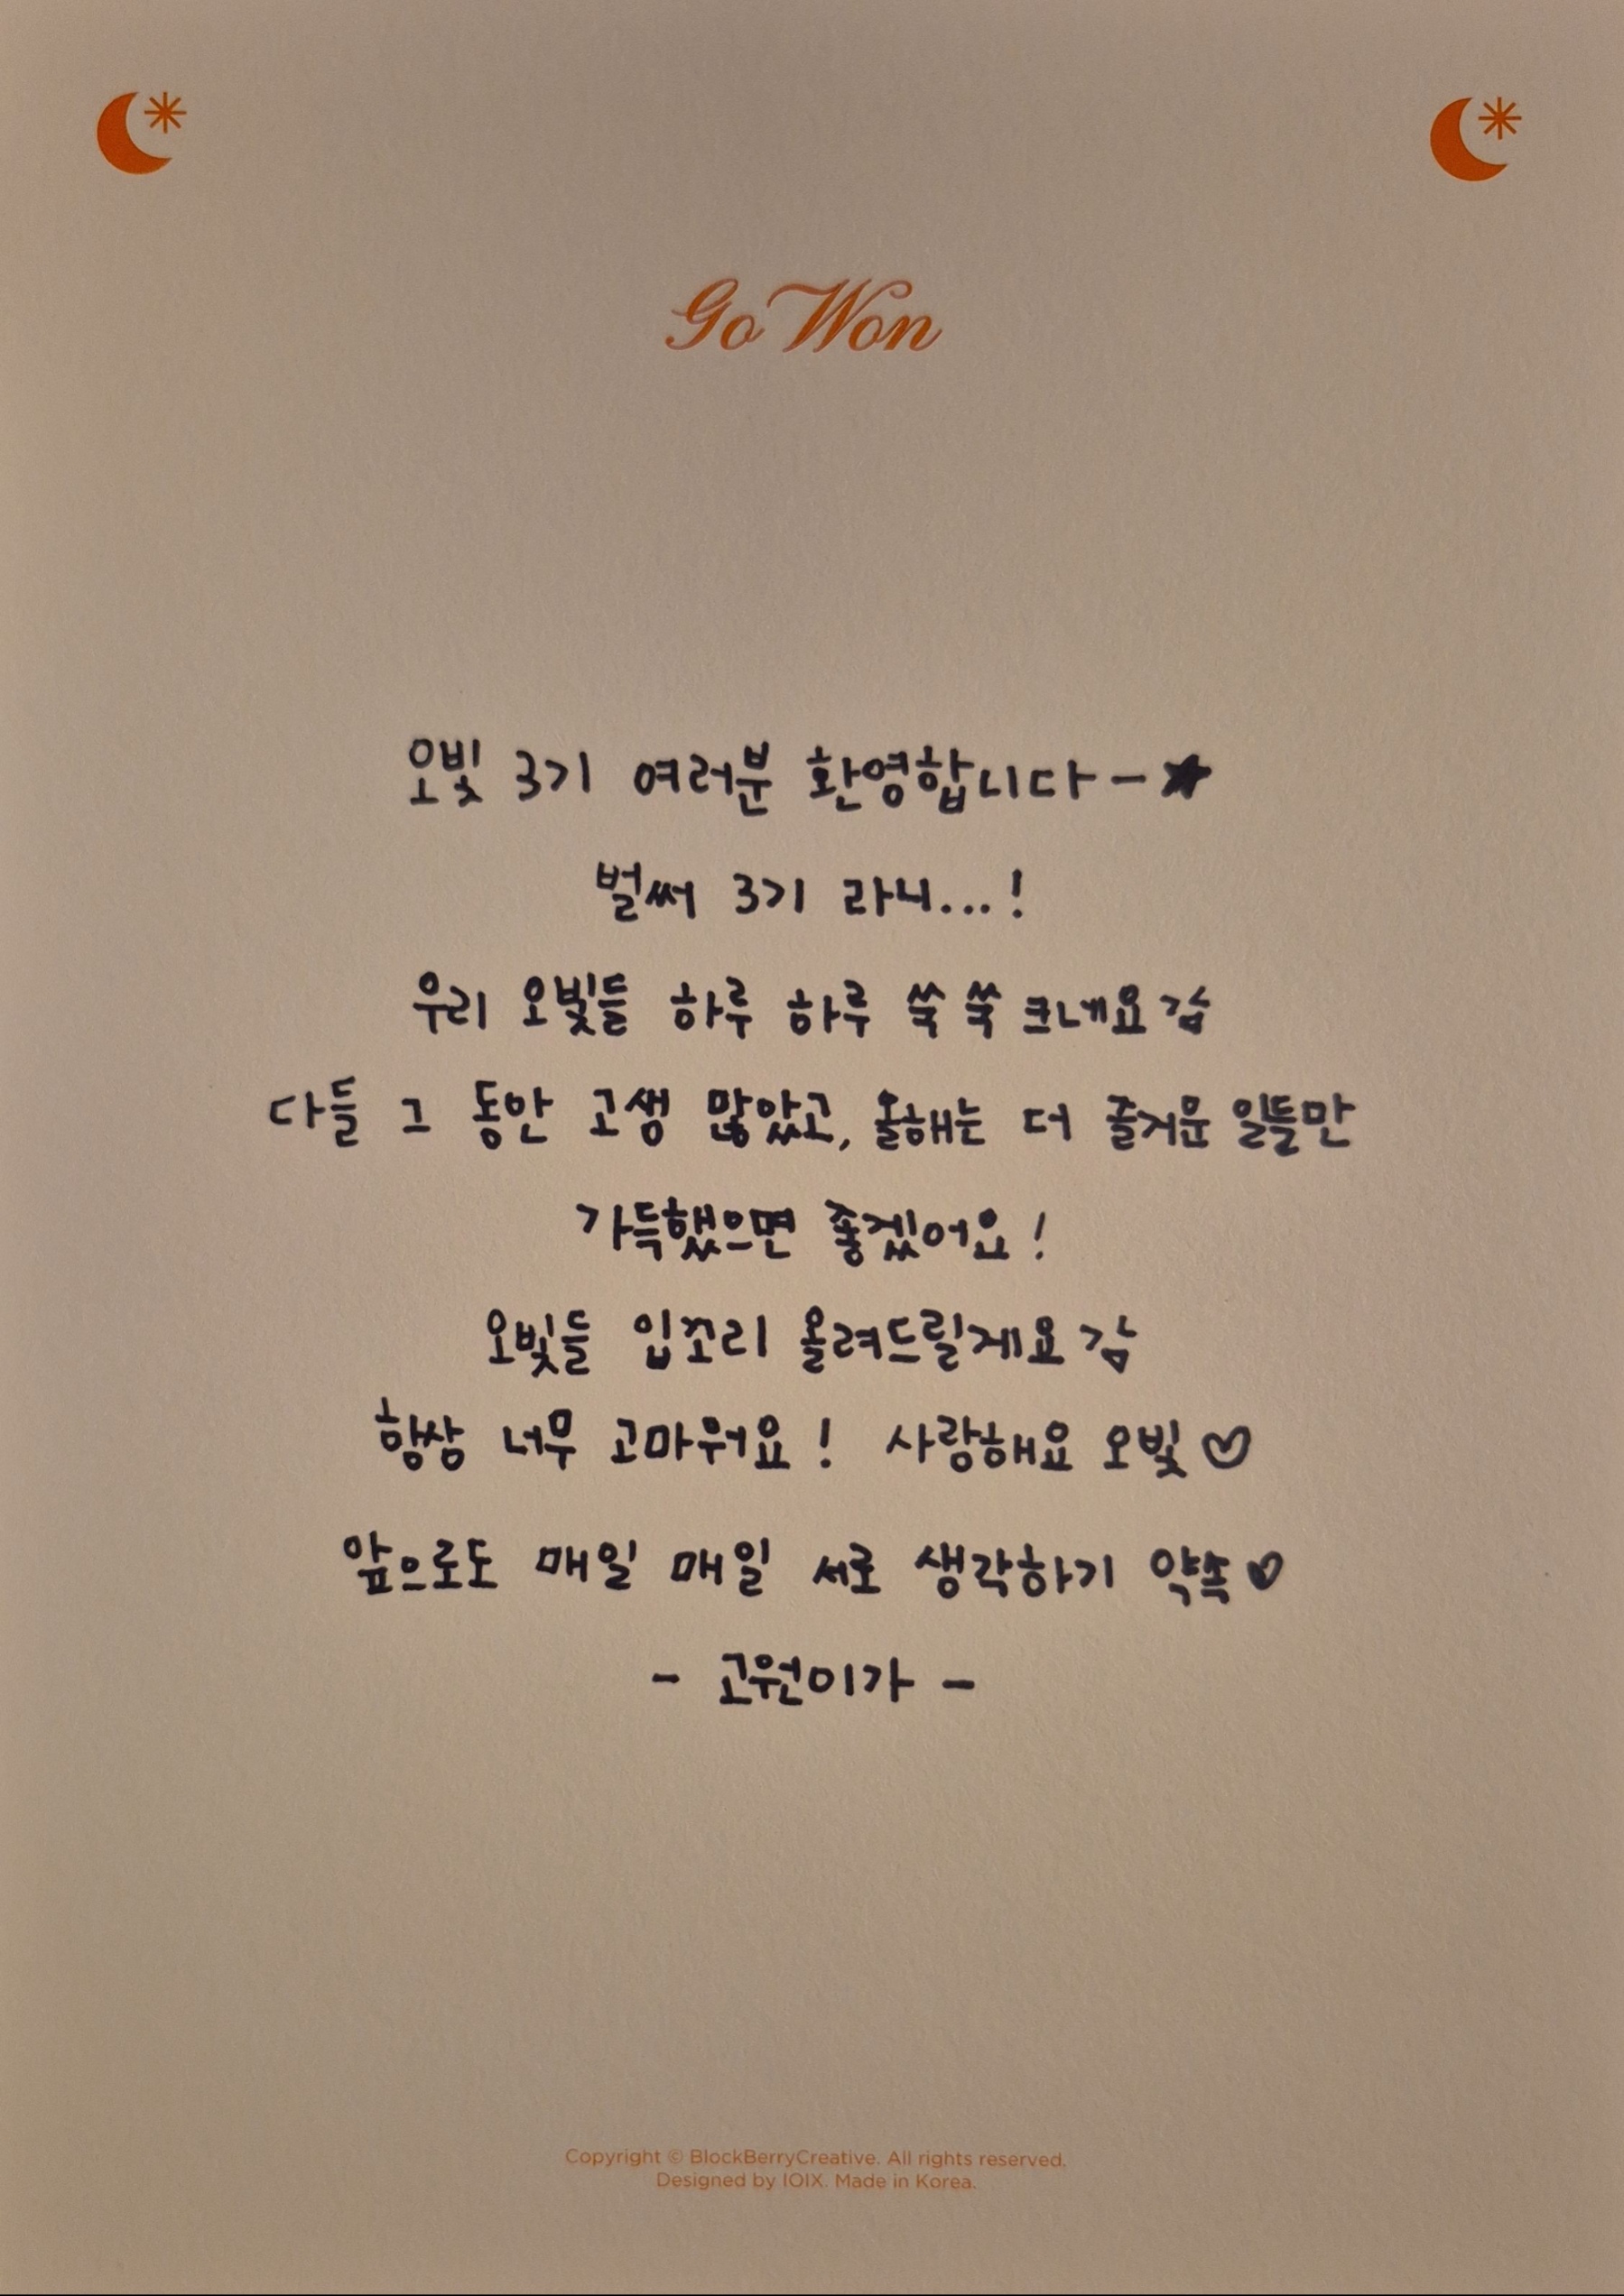 Go Won
오빛 3기 여러분 환영합니다-★
벌써 3기 라니...!
우리 오빛들 하루 하루 쑥 쑥 크네요 감
다들 그 동안 고생 많았고, 올해는 더 즐거운 일들만
가득했으면 좋겠어요!
오빛들 입꼬리 올려드릴게요 감
항상 너무 고마워요! 사랑해요 오빛♡
앞으로도 매일 매일 서로 생각하기 약속♡
- 고원이가 -
Copyright © BlockBerryCreative. All rights reserved.
Designed by IOIX. Made in Korea.